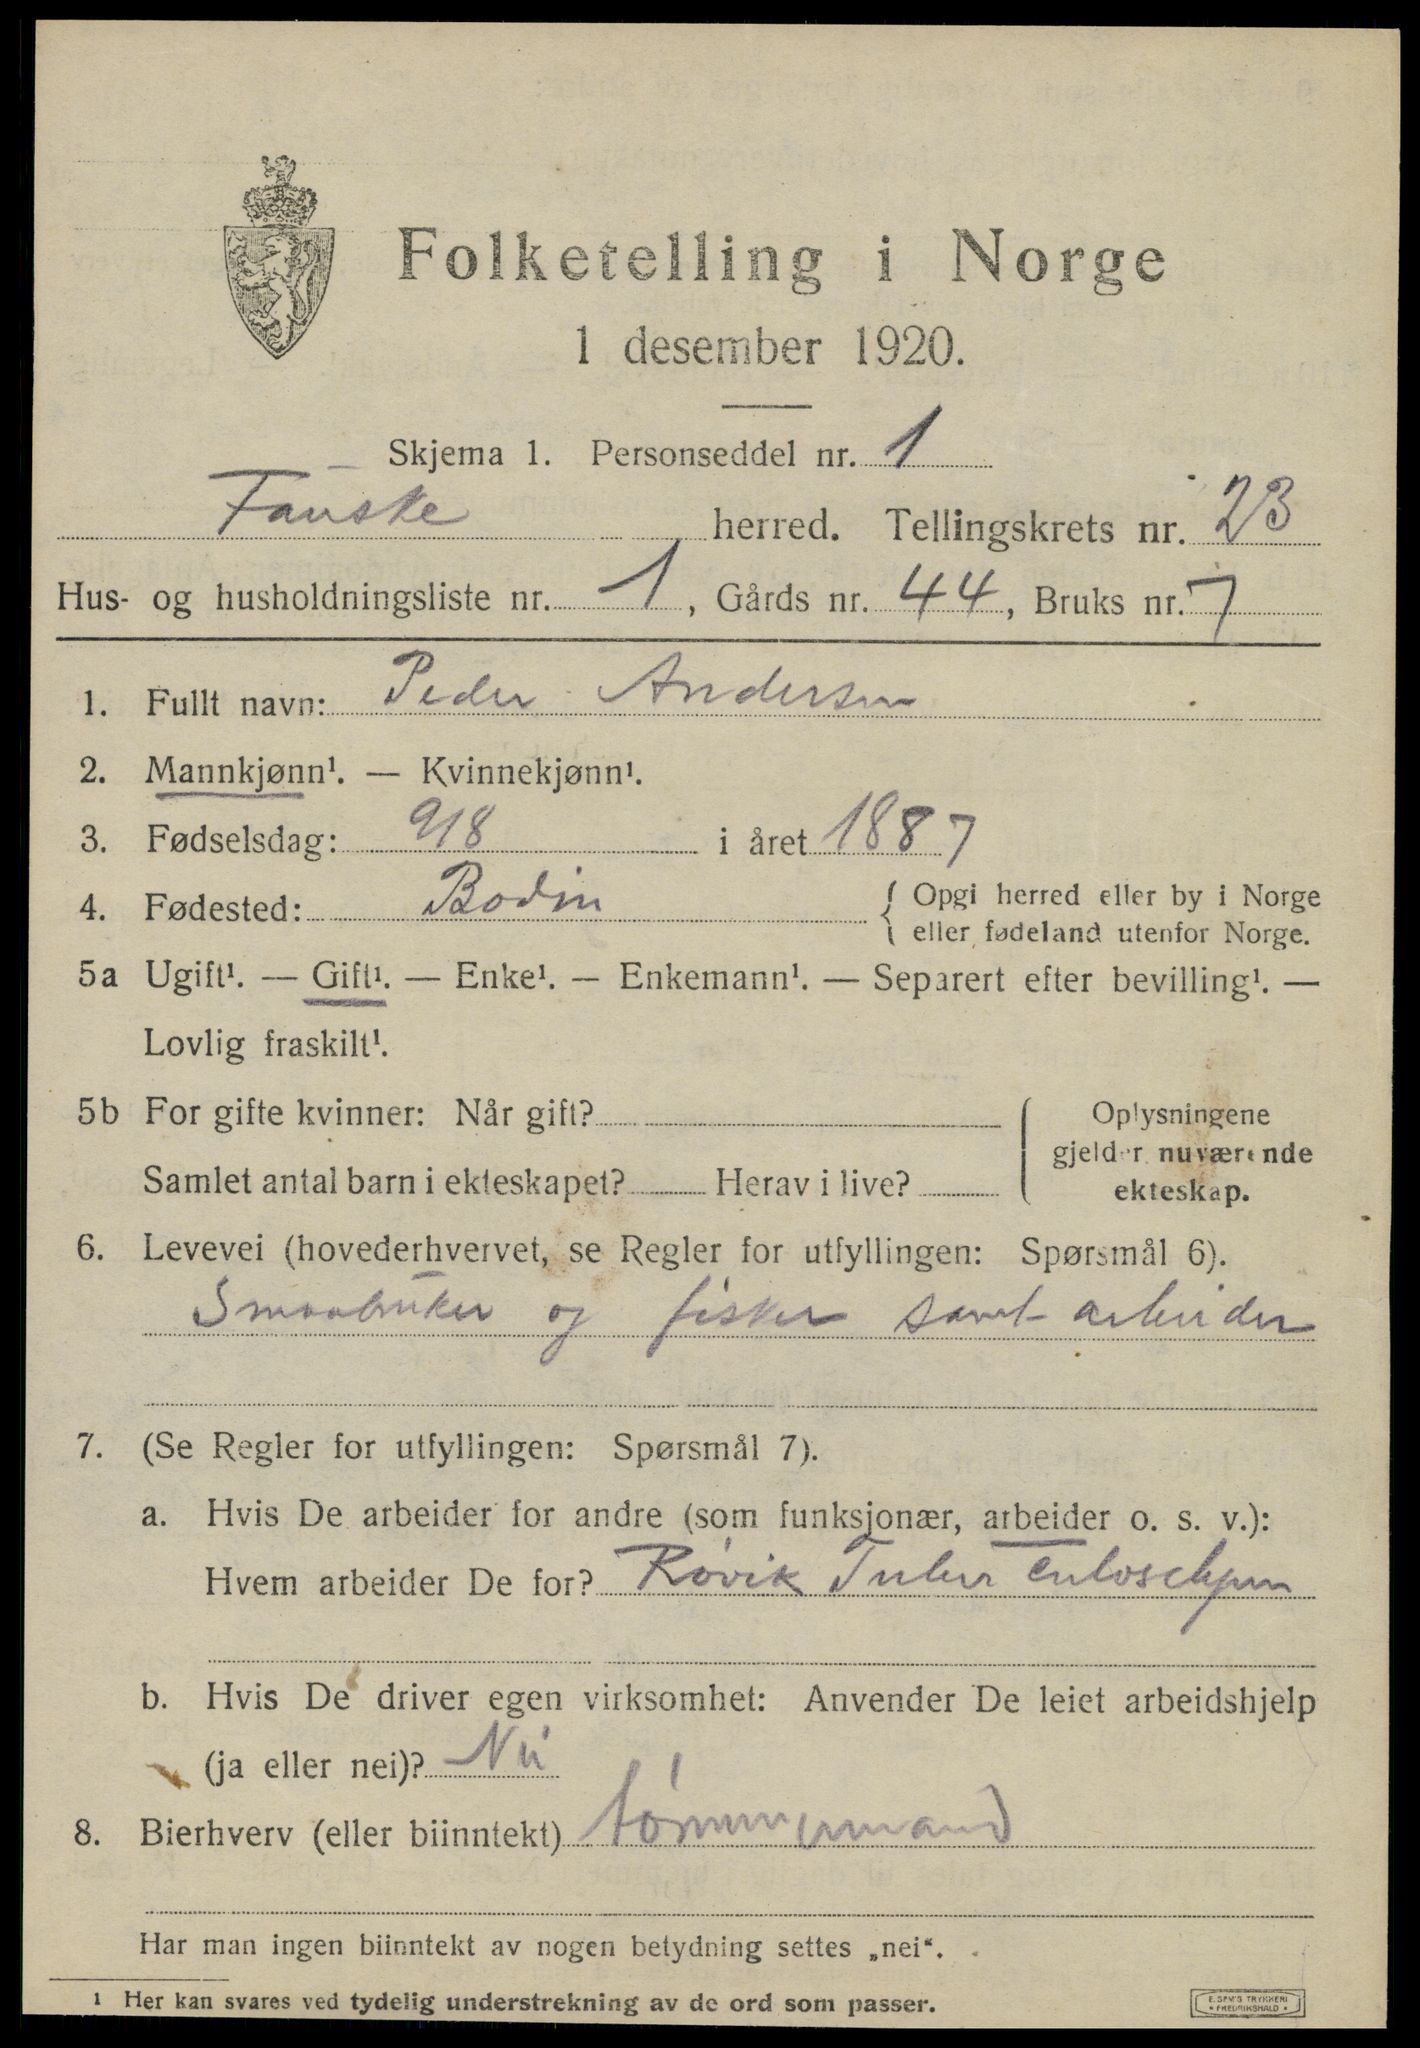 Folketelling i Norge
1 desember 1920.
Skjema 1. Personseddel nr. 1
Fauske herred. Tellingskrets nr. 23
Hus- og husholdningsliste nr. 1, Gårds nr. 44, Bruks nr. 7
1. Fullt navn: Peder Andersen
2. Mannkjønn¹. — Kvinnekjønn¹.
3. Fødselsdag: 9/8 i året 1887
4. Fødested: Bodin { Opgi herred eller by i Norge
eller fødeland utenfor Norge.
5a Ugift¹. — Gift¹. — Enke¹. — Enkemann¹. — Separert efter bevilling¹. —
Lovlig fraskilt¹.
5b For gifte kvinner: Når gift? Oplysningene
gjelder nuværende
Samlet antal barn i ekteskapet? Herav i live? ekteskap.
6. Levevei (hovederhvervet, se Regler for utfyllingen: Spørsmål 6).
Smaabruker og fisker samt arbeider
7. (Se Regler for utfyllingen: Spørsmål 7).
a. Hvis De arbeider for andre (som funksjonær, arbeider o. s. v.):
Hvem arbeider De for? Røvik
b. Hvis De driver egen virksomhet: Anvender De leiet arbeidshjelp
(ja eller nei)? Nei
8. Bierhverv (eller biinntekt) tømmermand
Har man ingen biinntekt av nogen betydning settes „nei“.
1 Her kan svares ved tydelig understrekning av de ord som passer.
E. SEM'S TRYKKERI
FREDRIKSHALD